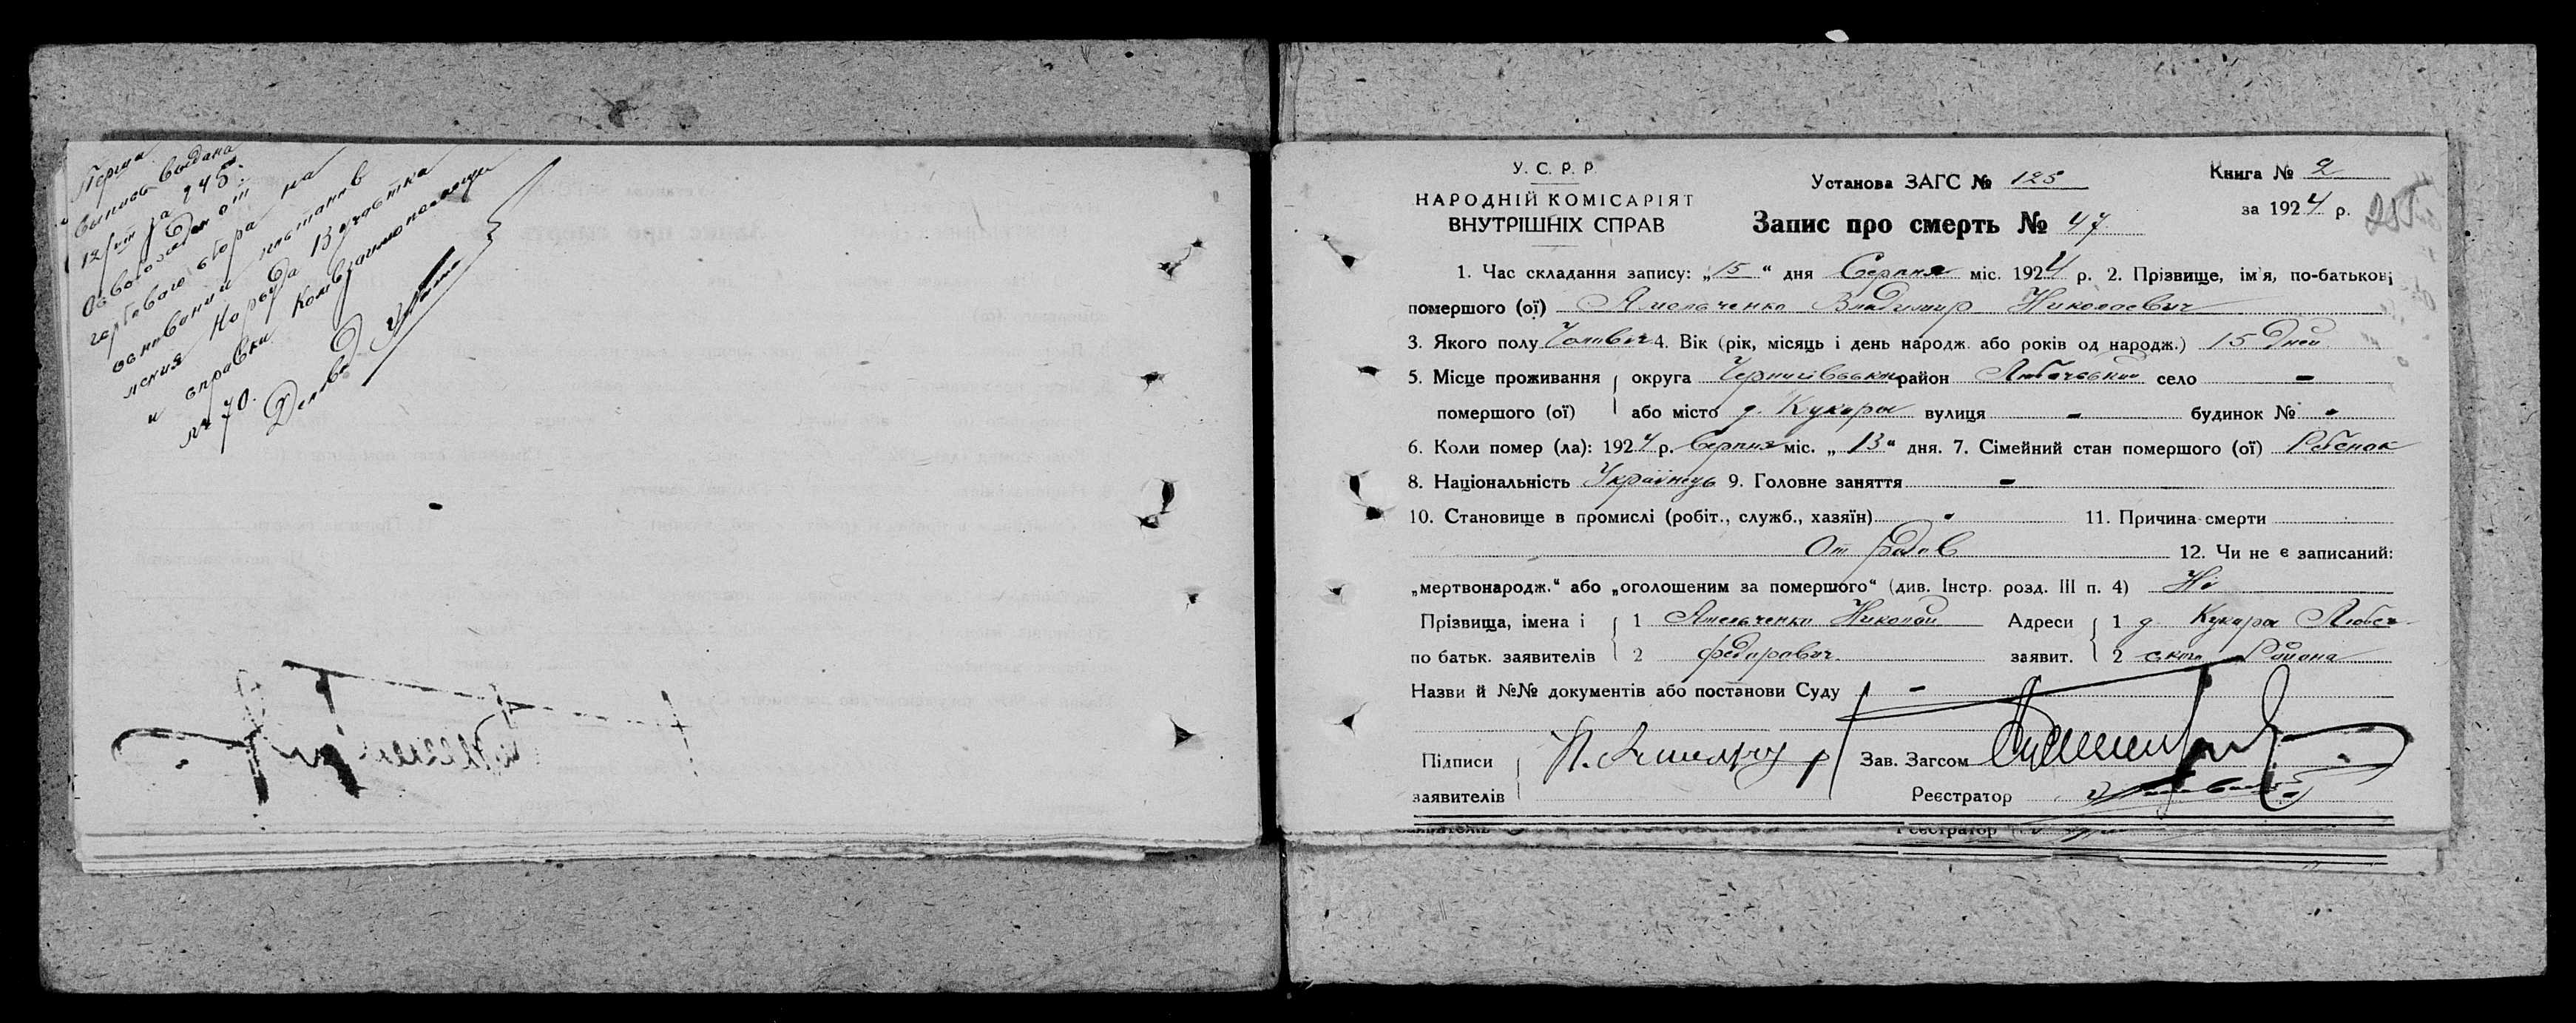 Перша
выпись выдана
12/VII за 245.
Освобожден от
гербового сбора на
основании
Нарсуда 13 участка
и справки Комвзаимопомощи
№ 70.
Делов
У. С. Р. Р.
НАРОДНІЙ КОМІСАРІЯТ
ВНУТРІШНІХ СПРАВ
Установа ЗАГС № 125
Запис про смерть № 47
Книга № 2
за 1924 р.
1. Час складання запису: „15“ дня Серпня міс. 1924 р. 2. Прізвище, ім'я, по-батькові
помершого (ої) Ямельченко Владимир Николаевич
3. Якого полу Чоловіч 4. Вік (рік, місяць і день народж. або років од народж.) 15 Дней
5. Місце проживання округа Чернигівськи район Любечевский село -
помершого (ої) або місто д. Кукари вулиця - будинок № -
6. Коли помер (ла): 1924 р. Серпня міс. „13“ дня. 7. Сімейний стан помершого (ої) Ребенок
8. Національність Українець 9. Головне заняття -
10. Становище в промислі (робіт., служб., хазяїн) - 11. Причина смерти
От родов 12. Чи не є записаний:
„мертвонародж.“ або „оголошеним за помершого“ (див. Інстр. розд. III п. 4) Ні
Прізвища, імена і 1 Ямельченко Николай Адреси 1 д. Кукари Любеч-
по батьк. заявителів 2 Федорович заявит. 2 ского Района
Назви й №№ документів або постанови Суду -
Підписи Зав. Загсом
заявителів Реєстратор
Реєстратор